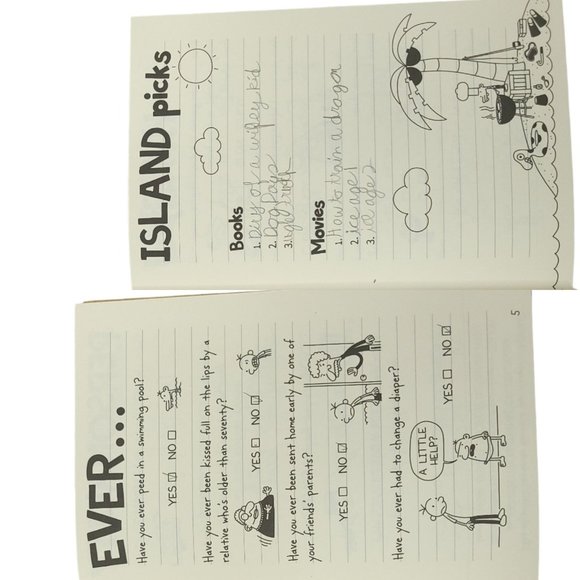 EVER...
Have you ever peed in a swimming pool?
YES ☑ NO ☐
Have you ever been kissed full on the lips by a
relative who's older than seventy?
YES ☐ NO ☑
Have you ever been sent home early by one of
your friends' parents?
YES ☐ NO ☑
Have you ever had to change a diaper?
A LITTLE
HELP?
YES ☐ NO ☑
5
ISLAND picks
Books
1. Diry of a wifey kid
2. Dog Days
3.
Movies
1. How to train a dragon
2. ice age 1
3. ice age 2